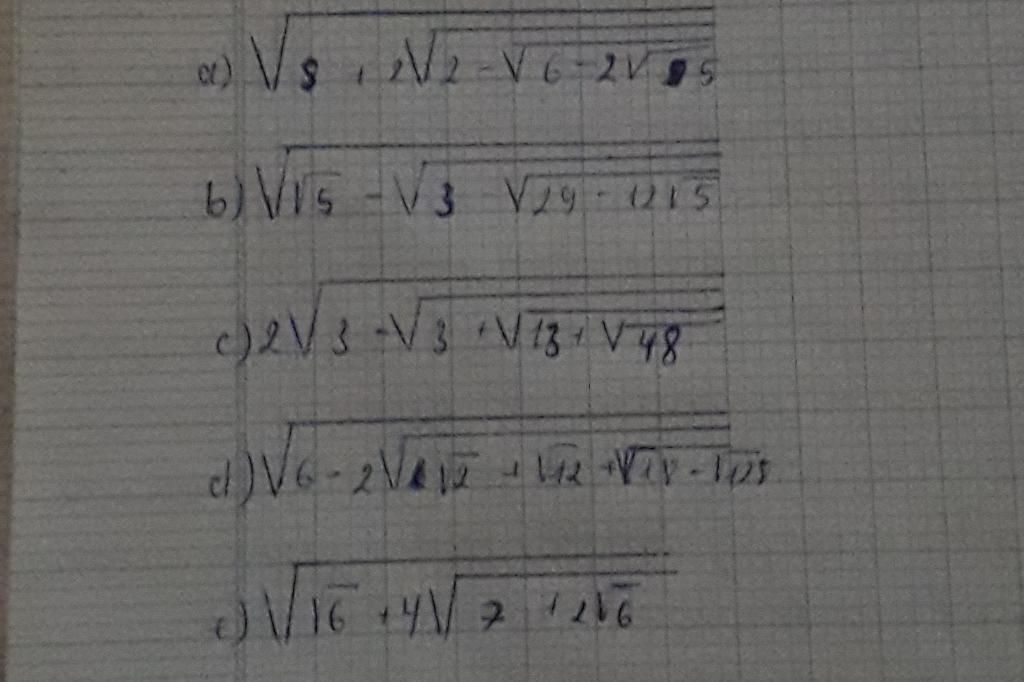 a) √(8 + 2√(2 - √(6 - 2√5)))
b) √(√5 - √(3 - √(29 - 12√5)))
c) 2√(3 - √(3 + √(13 + √48)))
d) √(6 - 2√(√2 + √12 + √(18 - √128)))
e) √(√6 + 4√(7 + 2√6))